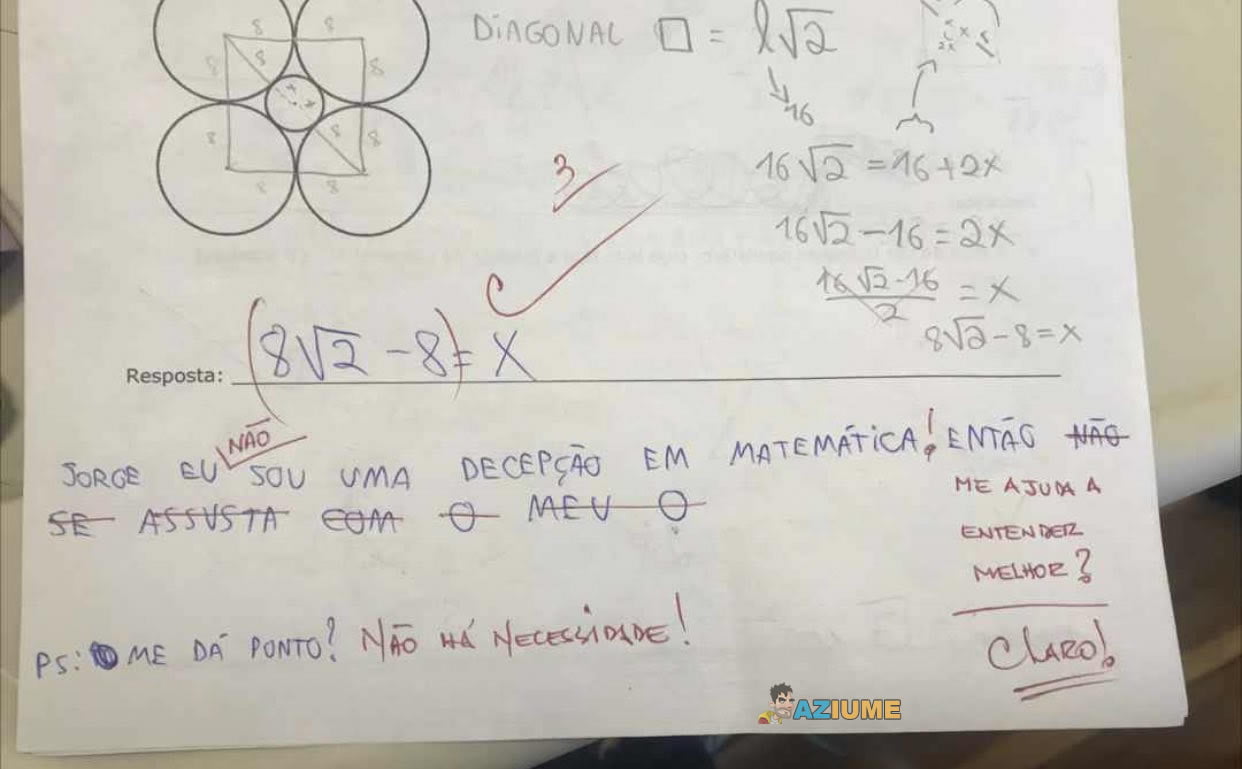 8 8
DIAGONAL □ = l√2
8 8 8
16
x x
8 8 8
8 8
3
16√2 = 16 + 2x
16√2 - 16 = 2x
16√2 - 16 / 2 = x
8√2 - 8 = x
C
Resposta: (8√2 - 8) = X
NÃO
JORGE EU SOU UMA DECEPÇÃO EM MATEMÁTICA! ENTÃO NÃO
SE ASSUSTA COM O MEU 0
ME AJUDA A
ENTENDER
MELHOR?
PS: ME DÁ PONTO? NÃO HÁ NECESSIDADE!
CLARO!
AZIUME